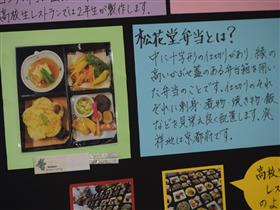 高校生レストランでは2年生が製作します。
松花堂弁当とは?
中に十字形の仕切りがあり、縁の
高いかぶせ蓋のある弁当箱を用い
た弁当のことです。仕切りのそれ
ぞれに刺身、煮物、焼き物、飯
などを見栄え良く配置します。発
祥地は京都府です。
高校
レス
のよ